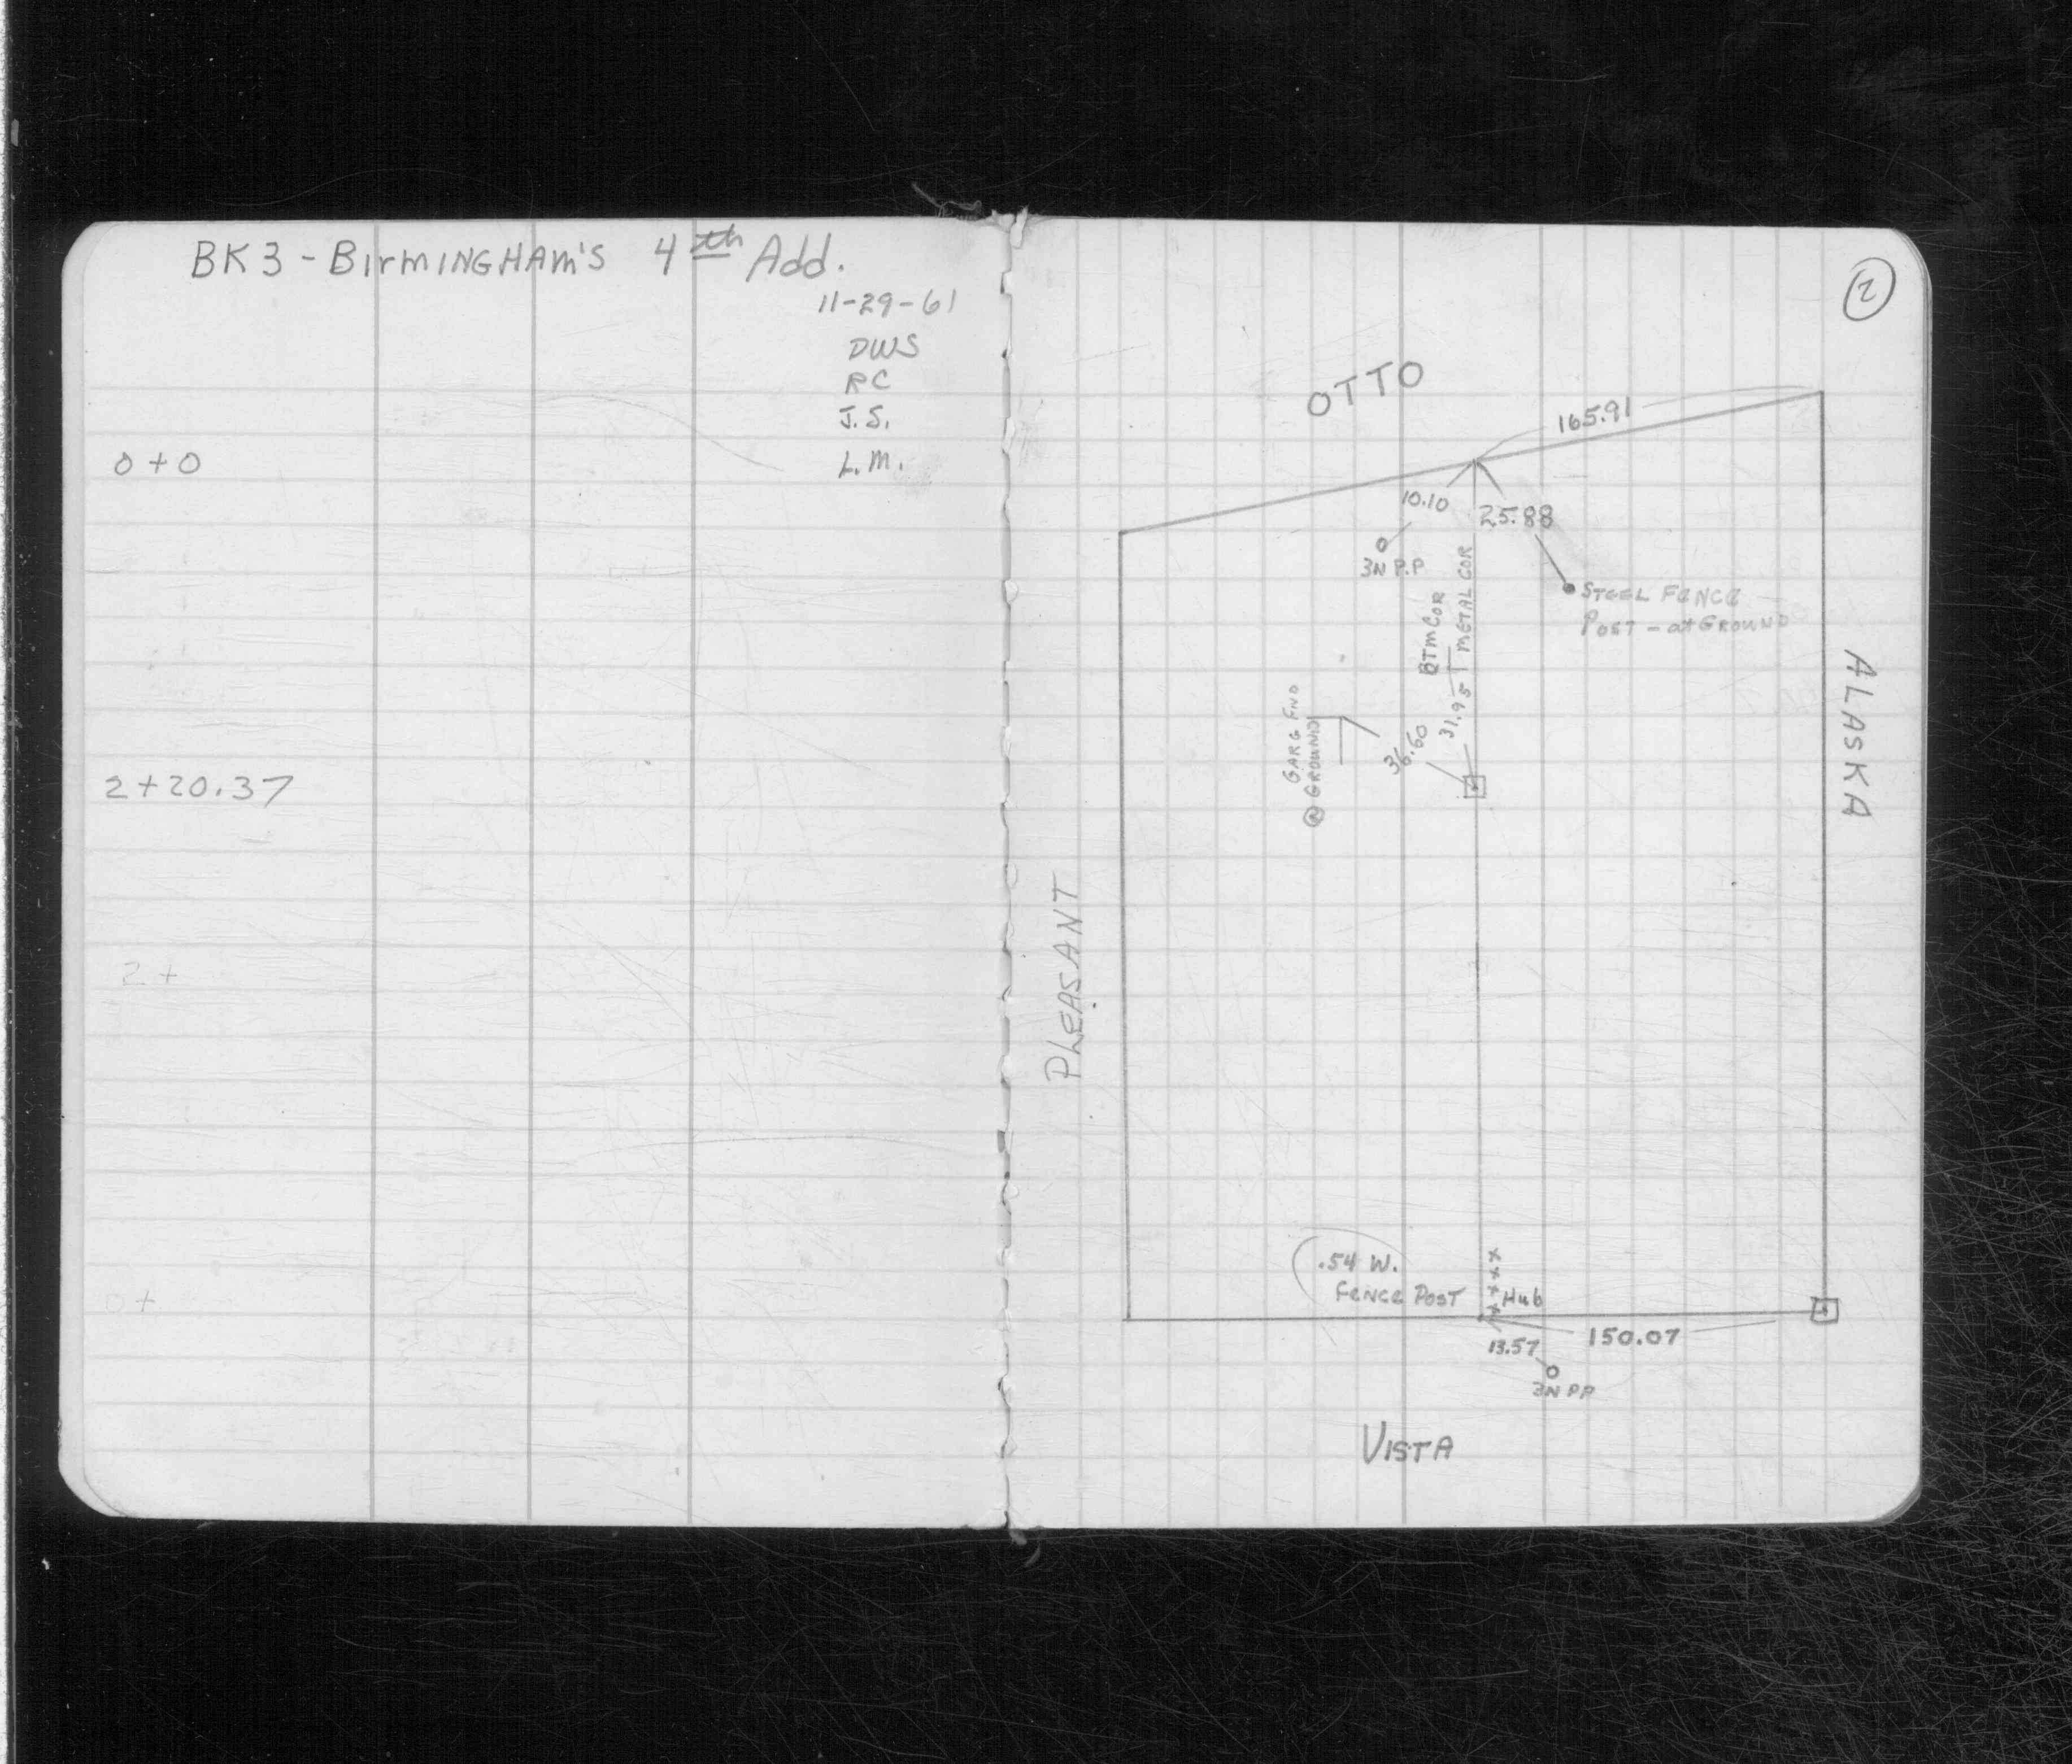 BK3 - BIRMINGHAM'S 4th Add.
11-29-61
DWS
RC
J.S.
L.M.
0+0
2+20.37
2+
0+
2
OTTO
165.91
10.10
25.88
3N P.P
STEEL FENCE
POST - at GROUND
BTM COR
METAL COR
31.95
36.60
GARG FND
@ GROUND
ALASKA
PLEASANT
.54 W.
FENCE POST
Hub
13.57
150.07
3N PP
VISTA